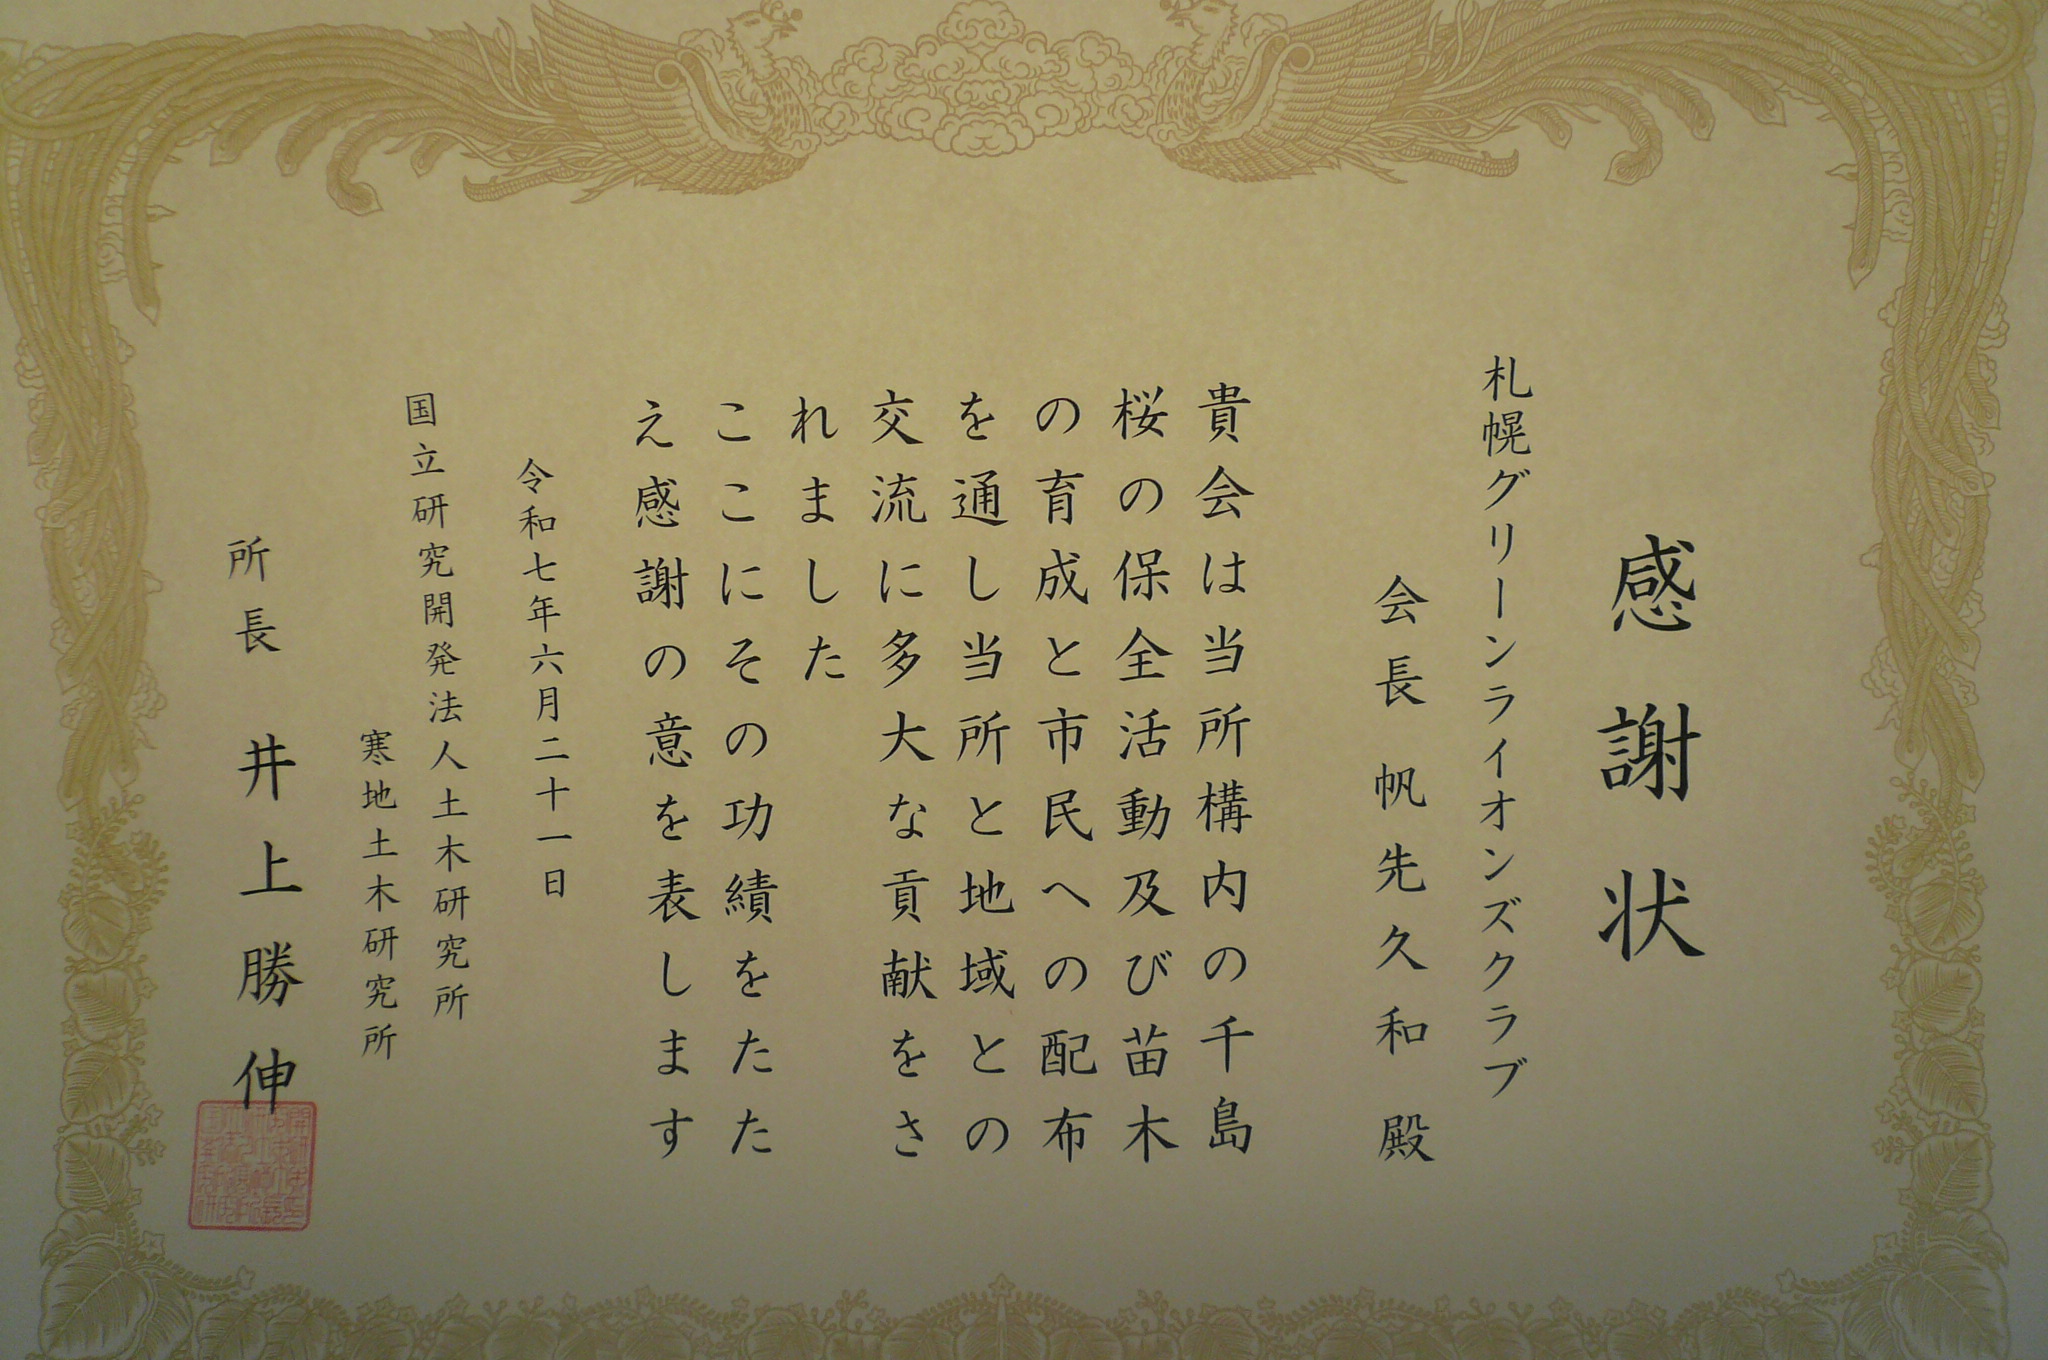 感謝状
札幌グリーンライオンズクラブ
会長 帆先久和 殿
貴会は当所構内の千島
桜の保全活動及び苗木
の育成と市民への配布
を通し当所と地域との
交流に多大な貢献をさ
れました
ここにその功績をたた
え感謝の意を表します
令和七年六月二十一日
国立研究開発法人土木研究所
寒地土木研究所
所長 井上勝伸